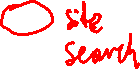 site
search